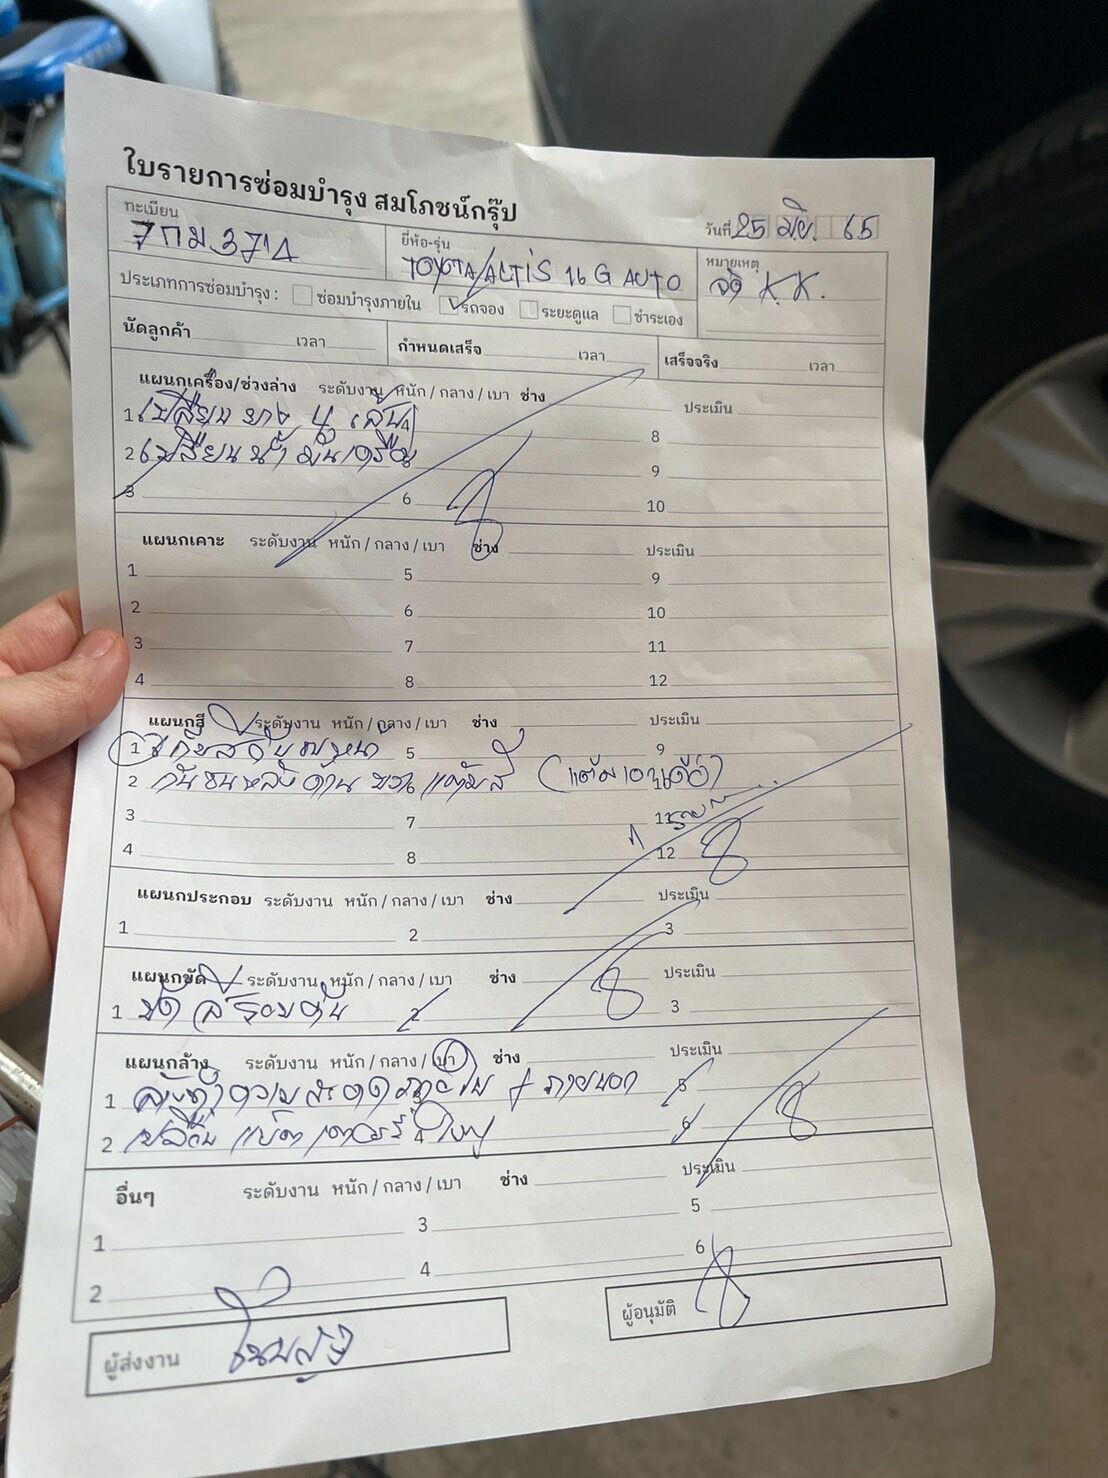 ใบรายการซ่อมบำรุง สมโภชน์กรุ๊ป
วันที่ 25 มิย. 65
ทะเบียน ยี่ห้อ-รุ่น หมายเหตุ
7กม 3714 TOYOTA/ALTIS 16 G AUTO K.K.
ประเภทการซ่อมบำรุง : ซ่อมบำรุงภายใน รถจอง ระยะดูแล ชำระเอง
นัดลูกค้า เวลา กำหนดเสร็จ เวลา เสร็จจริง เวลา
แผนกเครื่อง/ช่วงล่าง ระดับงาน หนัก / กลาง / เบา ช่าง ประเมิน
1 เปลี่ยนยาง 4 เส้น 8
2 เปลี่ยนน้ำมันเครื่อง 9
3 6 10
แผนกเคาะ ระดับงาน หนัก / กลาง / เบา ช่าง ประเมิน
1 5 9
2 6 10
3 7 11
4 8 12
แผนกสี ระดับงาน หนัก / กลาง / เบา ช่าง ประเมิน
1 5 9
2 กันชนหลังด้านขวา แต้มสี 10
3 7 11
4 8 12
แผนกประกอบ ระดับงาน หนัก / กลาง / เบา ช่าง ประเมิน
1 2 3
แผนกขัด ระดับงาน หนัก / กลาง / เบา ช่าง ประเมิน
1 ขัดสีรอบคัน 2 3
แผนกล้าง ระดับงาน หนัก / กลาง / เบา ช่าง ประเมิน
1 ล้างทำความสะอาดภายใน + ภายนอก 5
2 เปลี่ยนแบตเตอรี่ใหม่ 4 6
อื่นๆ ระดับงาน หนัก / กลาง / เบา ช่าง ประเมิน
1 3 5
2 4 6
ผู้ส่งงาน ผู้อนุมัติ